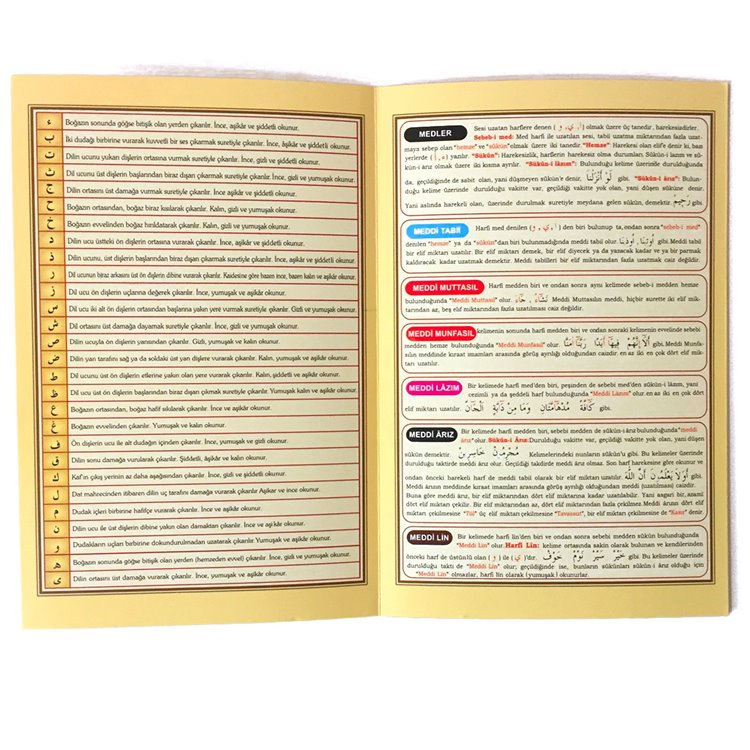 ء Boğazın sonunda göğse bitişik olan yerden çıkarılır. İnce, aşikâr ve şiddetli okunur.
ب İki dudağı birbirine vurarak kuvvetli bir ses çıkarmak suretiyle çıkarılır. İnce, aşikâr ve şiddetli okunur.
ت Dilin ucunu yukarı dişlerin ortasına vurmak suretiyle çıkarılır. İnce, gizli ve şiddetli okunur.
ث Dil ucunu üst dişlerin başlarından biraz dışarı çıkarmak suretiyle çıkarılır. İnce, gizli ve yumuşak okunur.
ج Dilin ortasını üst damağa vurmak suretiyle çıkarılır. İnce aşikâr ve şiddetli okunur.
ح Boğazın ortasından, boğaz biraz kısılarak çıkarılır. Kalın, gizli ve yumuşak okunur.
خ Boğazın evvelinden boğaz hırıldatarak çıkarılır. Kalın, gizli ve yumuşak okunur.
د Dilin ucu üstteki ön dişlerin ortasına vurarak çıkarılır. İnce, aşikâr ve şiddetli okunur.
ذ Dil ucunu, üst dişlerin başlarından biraz dışarı çıkarmak suretiyle çıkarılır. İnce, aşikâr ve yumuşak okunur.
ر Dil ucunun biraz arkasını üst ön dişlerin dibine vurarak çıkarılır. Kaidesine göre bazen ince, bazen kalın ve aşikâr okunur.
ز Dil ucu ön dişlerin uçlarına değerek çıkarılır. İnce, yumuşak ve aşikâr okunur.
س Dil ucu iki alt ön dişlerin ortasından başlarına yakın yere vurmak suretiyle çıkarılır. Gizli, ince ve yumuşak okunur.
ش Dil ortasını üst damağa dayamak suretiyle çıkarılır. İnce, gizli ve yumuşak okunur.
ص Dilin ucuyla ön dişlerin yanısından çıkarılır. Gizli, yumuşak ve kalın okunur.
ض Dilin yan tarafını sağ ya da soldaki üst yan dişlere vurarak çıkarılır. Kalın, yumuşak ve aşikâr okunur.
ط Dil ucunu üst ön dişlerin etlerine yakın olan yere vurarak çıkarılır. Kalın, şiddetli ve aşikâr okunur.
ظ Dil ucunu üst ön dişlerin başlarından biraz dışarı çıkmak suretiyle çıkarılır. Yumuşak kalın ve aşikâr okunur.
ع Boğazın ortasından, boğaz hafif sıkılarak çıkarılır. İnce ve aşikâr okunur.
غ Boğazın evvelinden çıkarılır. Yumuşak ve kalın okunur.
ف Ön dişlerin ucu ile alt dudağın içinden çıkarılır. İnce, yumuşak ve gizli okunur.
ق Dilin sonu damağa vurularak çıkarılır. Şiddetli, âşikâr ve kalın okunur.
ك Kaf'ın çıkış yerinin az daha aşağısından çıkarılır. İnce, gizli ve şiddetli okunur.
ل Dat mahrecinden itibaren dilin uç tarafını damağa vurarak çıkarılır Aşikar ve ince okunur.
م Dudak içleri birbirine hafifçe vurarak çıkarılır. İnce ve aşikâr okunur.
ن Dilin ucu ile üst dişlerin dibine yakın olan damaktan çıkarılır. İnce ve aşikâr okunur.
و Dudakların uçları birbirine dokundurulmadan uzatarak çıkarılır. Yumuşak ve aşikâr okunur.
ه Boğazın sonunda göğse bitişik olan yerden (hemzeden evvel) çıkarılır. İnce, gizli ve yumuşak okunur.
ى Dilin ortasını üst damağa vurarak çıkarılır. İnce, yumuşak ve aşikâr okunur.
MEDLER Sesi uzatan harflere denen ( ا, ي, و ) olmak üzere üç tanedir. harekesizdirler.
Sebeb-i med: Med harfi ile uzatılan sesi, tabii uzatma miktarından fazla uzatmaya
sebep olan "hemze" ve "sükûn"olmak üzere iki tanedir. "Hemze": Harekesi olan elife denir ki, bazı
yerlerde ( ء, أ ) yazılır. "Sükûn": Harekesizlik, harflerin harekesi olma durumları. Sükûn-i lazım ve sükûn-i
ârız olmak üzere iki kısma ayrılır. "Sükûn-i lâzım": Bulunduğu kelime üzerinde durulduğunda
da, geçildiğinde de sabit olan, yani düşmeyen sükûn'e denir. لَوْ أَنْزَلْنَا gibi. "Sükûn-i ârız": Bulunduğu
kelime üzerinde durulduğu vakitte var, geçildiği vakitte yok olan, yani düşen sükûne denir.
Yani aslında harekeli olan, üzerinde durulmak suretiyle meydana gelen sükûn, demektir. رَحِيمْ gibi.
MEDDİ TABİİ Harfi med denilen ( ا, ي, و ) den biri bulunup ta, ondan sonra"sebeb-i med"
denilen "hemze" ya da "sükûn"dan biri bulunmadığında meddi tabii olur. اُوتِينَا , اُوذِينَا gibi.Meddi tabii
bir elif miktarı uzatılır. Bir elif miktarı demek, bir elif diyecek ya da bir elif yazacak ya da bir parmak
kaldıracak kadar uzatmak demektir. Meddi tabiileri bir elif miktarından fazla uzatmak caiz değildir.
MEDDİ MUTTASIL Harfi medden biri ve ondan sonra aynı kelimede sebeb-i medden hemze
bulunduğunda "Meddi Muttasıl" olur. جَٓاءَ , نِسَٓاءٌ gibi. Meddi Muttasılın meddi, hiçbir surette iki elif miktarından
az, beş elif miktarından fazla uzatılması caiz değildir.
MEDDİ MUNFASIL kelimenin sonunda harfin medden biri ve ondan sonraki kelimenin evvelinde sebebi
medden hemze bulunduğunda "Meddi Munfasıl" olur. اَلَٓا اِنَّهُمْ فِيهَٓا اَبَدًا رَبَّنَٓا اٰمَنَّا gibi. Meddi Munfasılın
meddinde kıraat imamları arasında görüş ayrılığı olduğundan caizdir. en az iki en çok dört elif miktarı
uzatılır.
MEDDİ LÂZIM Bir kelimede harfi med'den biri, peşinden de sebebi med'den sükûn-i lâzım, yani
cezimli ya da şeddeli harf bulunduğunda "Meddi Lâzım" olur.en az iki en çok dört
elif miktarı uzatılır. كَٓافَّةً مُدْهَٓامَّتَانِ وَمَا مِنْ دَٓابَّةٍ اَلْحَٓاقَّةُ gibi.
MEDDİ ÂRIZ Bir kelimede harfi medden biri, sebebi medden de sükûn-i ârız bulunduğunda "meddi
ârız"olur. Sükûn-i Ârız:Durulduğu vakitte var, geçildiği vakitte yok olan, yani düşen
sükûn demektir. مُجْرِمُونْ خَاسِرِينْ Kelimelerindeki nunların sükûn'u gibi. Bu kelimeler üzerinde
durulduğu taktirde meddi ârız olur. Geçildiği takdirde meddi ârız olmaz. Son harf harekesine göre okunur ve
ondan önceki harekeli harf de meddi tabii olarak bir elif miktarı uzatılır. اَوَلَا يَعْلَمُونَ اَنَّ اللّٰهَ gibi.
Meddi ârızın meddinde kıraat imamları arasında görüş ayrılığı olduğundan meddi (uzatılması) caizdir.
Buna göre meddi ârız, bir elif miktarından dört elif miktarına kadar uzatılabilir. Yani asgari bir,azami
dört elif miktarı çekilir. Bir elif miktarından az, dört elif miktarından fazla çekilmez. Meddi Ârızın dört elif
miktarı çekilmesine "Tûl" üç elif miktarı çekilmesine "Tavassut", bir elif miktarı çekilmesine de "Kasr" denir.
MEDDİ LİN Bir kelimede harfi lin'den biri ve ondan sonra aynı kelimede sebebi med'den sükûn bulunduğunda
"Meddi Lin" olur.Harfi Lin: kelime ortasında sakin olarak bulunan ve kendilerinden
önceki harf de üstünlü olan ( و ) ile ( ي )'dır. خَيْرْ سَيْرْ نَوْمْ خَوْفْ gibi Bu kelimeler üzerinde
durulduğu takti de "Meddi Lin" olur; geçildiğinde ise, bunların sükûnları sükûn-i ârız olduğu için
"Meddi Lin" olmazlar, harfi lin olarak (yumuşak) okunurlar.